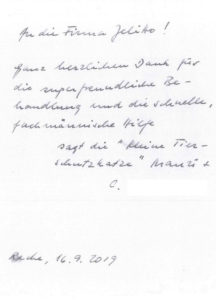 An die Firma Jeliko!
Ganz herzlichen Dank für
die superfreundliche Be-
handlung und die schnelle,
fachmännische Hilfe
sagt die "Kleine Tier-
schutzkatze" +
C.
16.9.2019